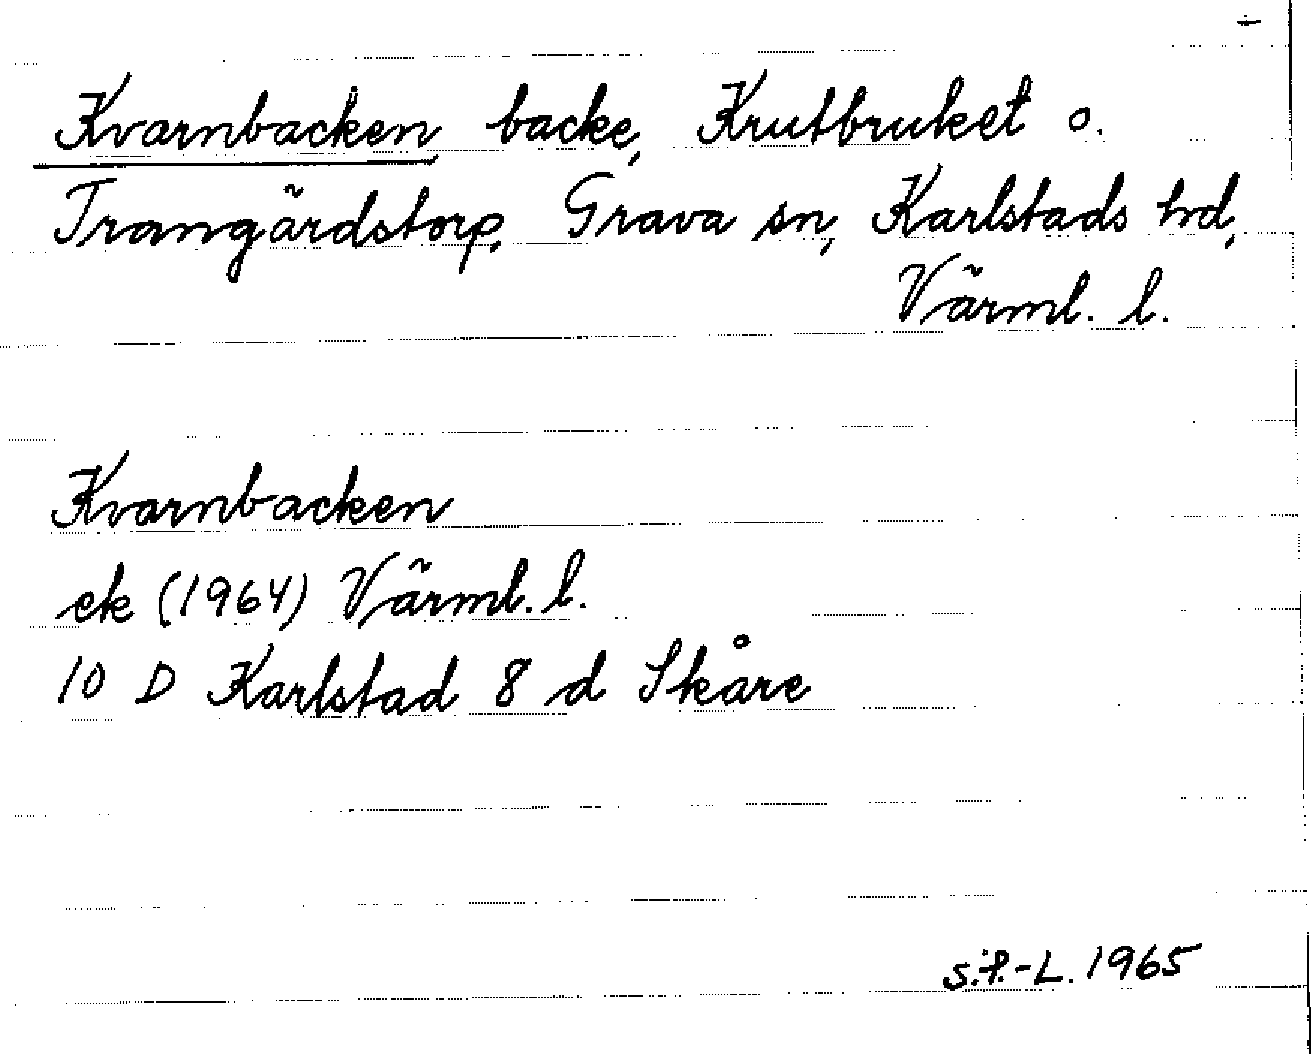 Kvarnbacken backe, Krutbruket o.
Trangärdstorp, Grava sn, Karlstads hd,
Värml. l.
Kvarnbacken
ek (1964) Värml. l.
10 D Karlstad 8 d Skåre
1965